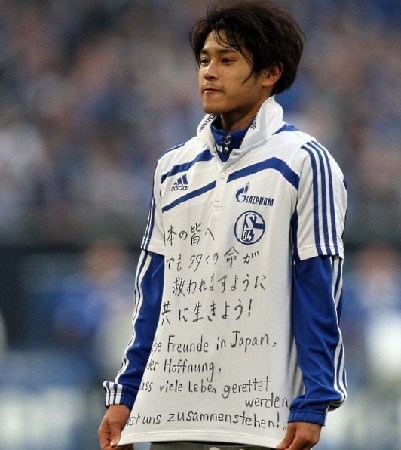 adidas
GAZPROM
S
04
本の皆へ
でも多くの命が
救われますように
共に生きよう!
Freunde in Japan,
Hoffnung,
viele Leben gerettet
werden
uns zusammenstehen!